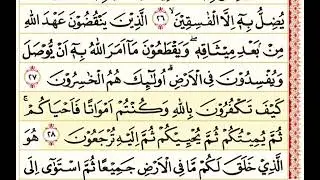 يُضِلُّ بِهٖۤ اِلَّا الۡفٰسِقِيۡنَۙ‏ ﴿۲۶﴾ الَّذِيۡنَ يَنۡقُضُوۡنَ عَهۡدَ اللّٰهِ
مِنۡۢ بَعۡدِ مِيۡثَاقِهٖ وَيَقۡطَعُوۡنَ مَآ اَمَرَ اللّٰهُ بِهٖۤ اَنۡ يُّوۡصَلَ
وَيُفۡسِدُوۡنَ فِى الۡاَرۡضِؕ اُولٰٓٮِٕكَ هُمُ الۡخٰسِرُوۡنَ‏ ﴿۲۷﴾
كَيۡفَ تَكۡفُرُوۡنَ بِاللّٰهِ وَڪُنۡتُمۡ اَمۡوَاتًا فَاَحۡيَاکُمۡۚ
ثُمَّ يُمِيۡتُكُمۡ ثُمَّ يُحۡيِيۡكُمۡ ثُمَّ اِلَيۡهِ تُرۡجَعُوۡنَ‏ ﴿۲۸﴾ هُوَ
الَّذِىۡ خَلَقَ لَـكُمۡ مَّا فِى الۡاَرۡضِ جَمِيۡعًا ثُمَّ اسۡتَوٰۤى اِلَى